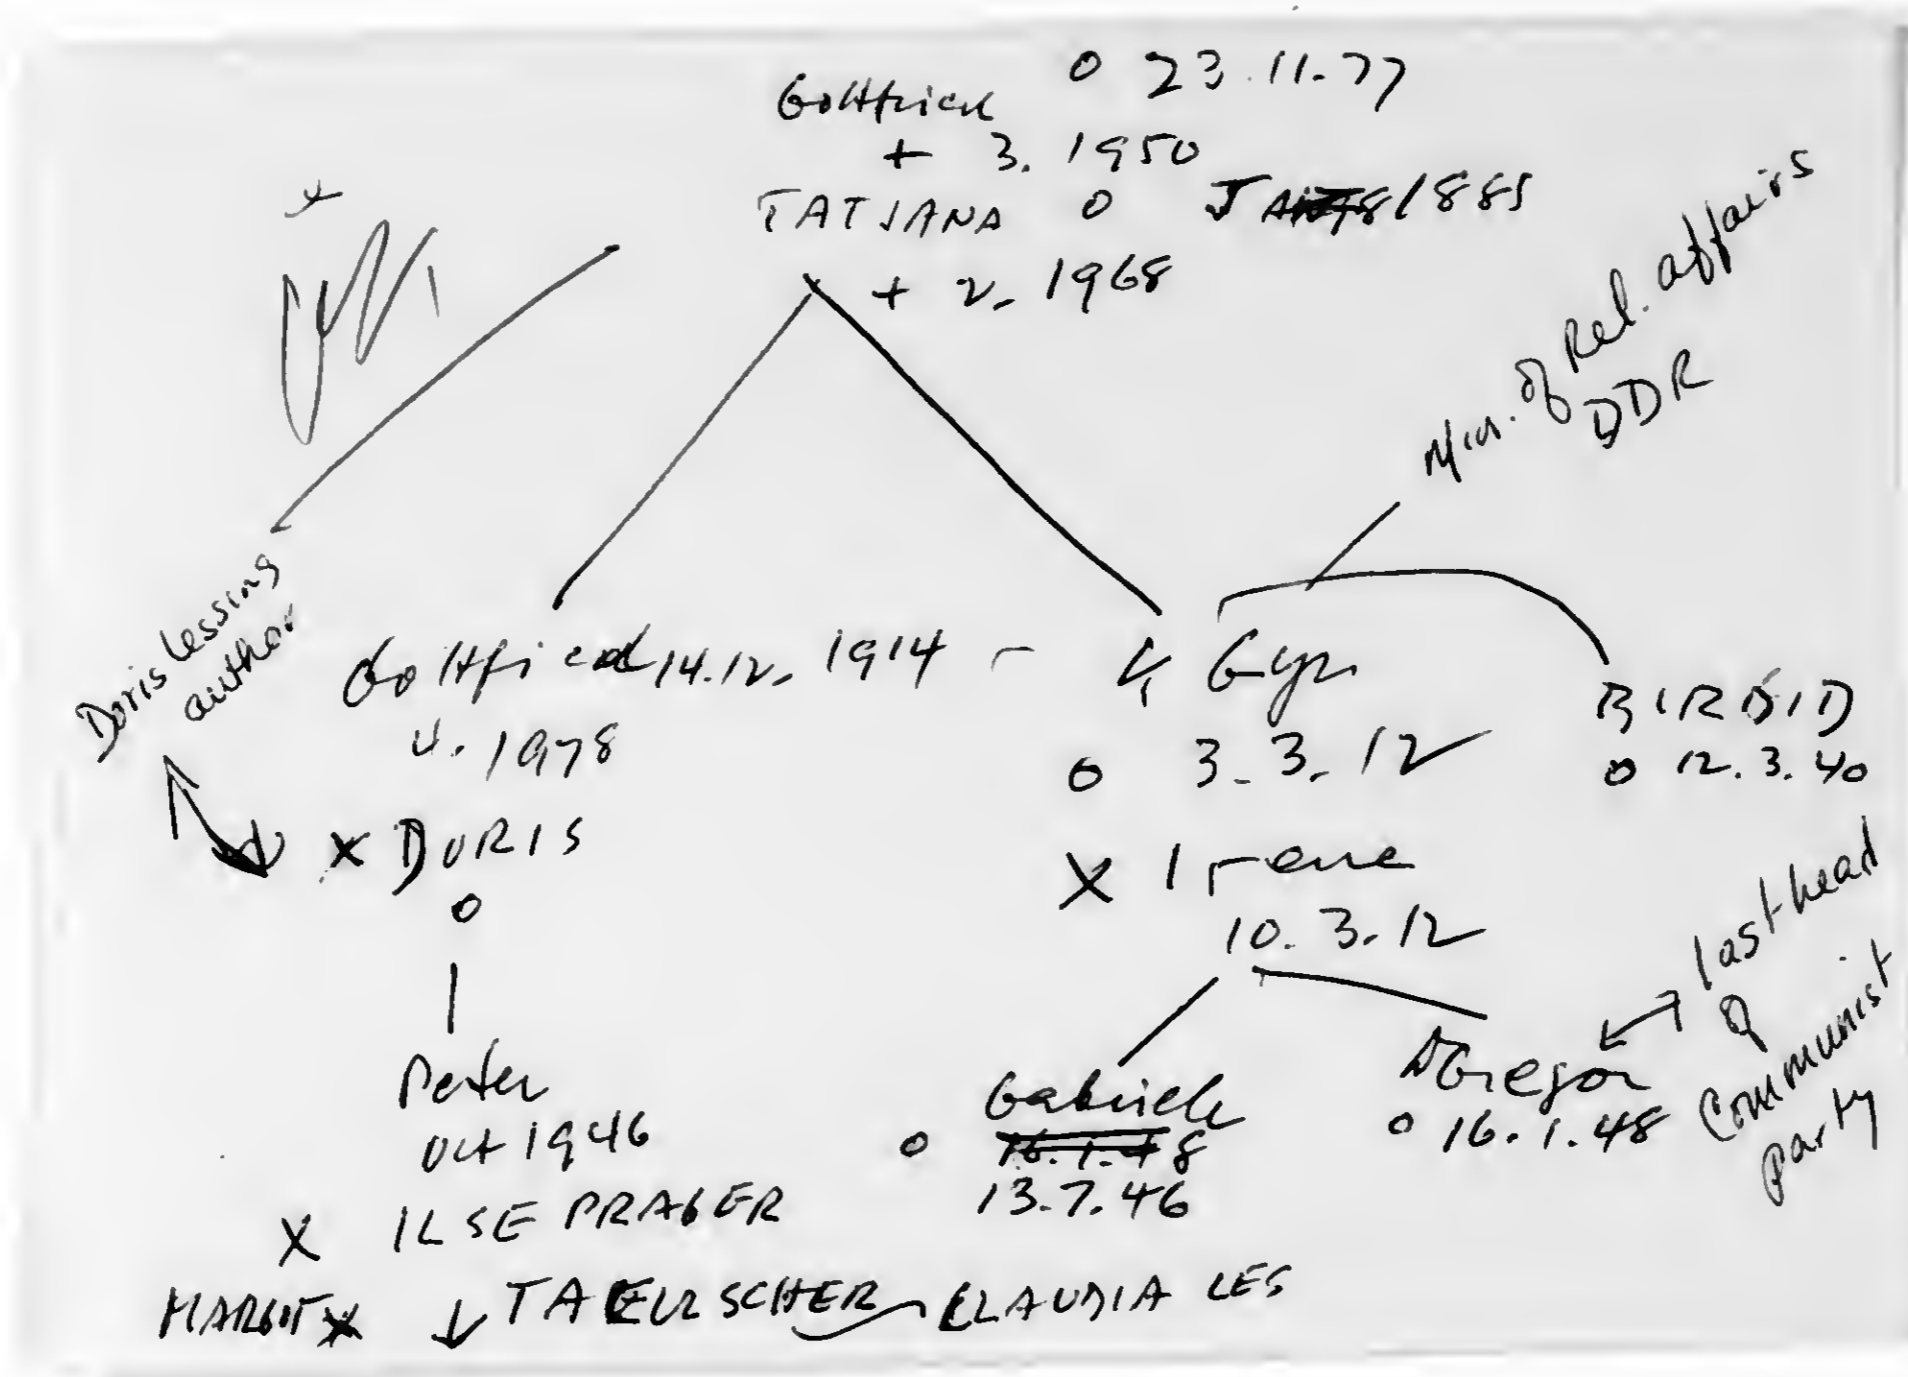 Gottfried o 23.11.77
+ 3. 1950
TATJANA o 1885
+ 2. 1968
Min. of Rel. affairs
DDR
Doris Lessing
author
Gottfried 14.12. 1914 –
4. 1978
x DORIS
o
Peter
Oct 1946
x ILSE PRAGER
MARGOT x ↓ TAEUBSCHER CLAUDIA LES
o 3.3.12
x Irene
10.3.12
o 12.3.40
Gabriele
o 16.1.48
13.7.46
Gregor
o 16.1.48
last head
of
Communist
Party